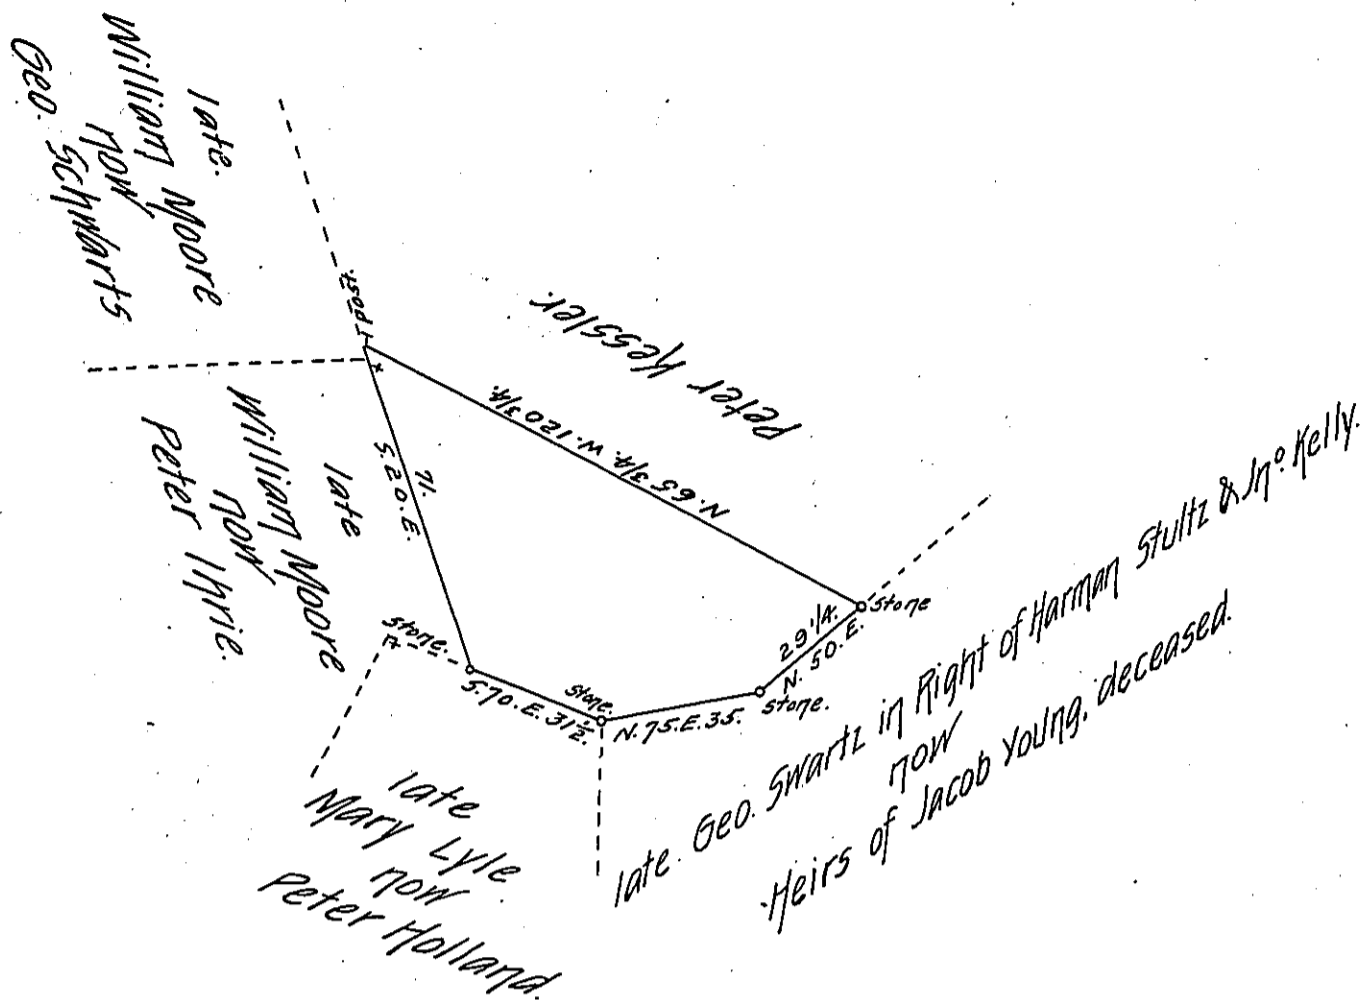 late.
William Moore
now
Geo. Schwarts
Post.
Peter Kessler.
N. 65 3/4. W. 120 3/4.
71.
S. 20. E.
late
William Moore
now
Peter Ihrie.
stone.
S. 70. E. 31 1/2.
stone.
N. 75. E. 35.
stone.
29 1/4.
N. 50. E.
stone
late
Mary Lyle
now
Peter Holland.
late. Geo. Swartz in Right of Harman Stultz & Jno. Kelly.
now
Heirs of Jacob Young, deceased.